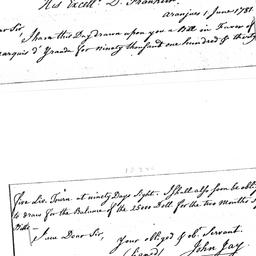 His Excell.y D. Franklin.
Aranjues 1 June 1781
Sir, I have this Day drawn upon you a Bill in Favor of
arquis d'Yranda for ninety thousand one hundred & thirty
five Liv. Tourn. at ninety Days Sight. I shall also soon be oblig
to draw for the Balance of the 25000 Doll for the two months
Bills —
I am Dear Sir,
Your obliged & ob.t Servant.
(signed) John Jay.